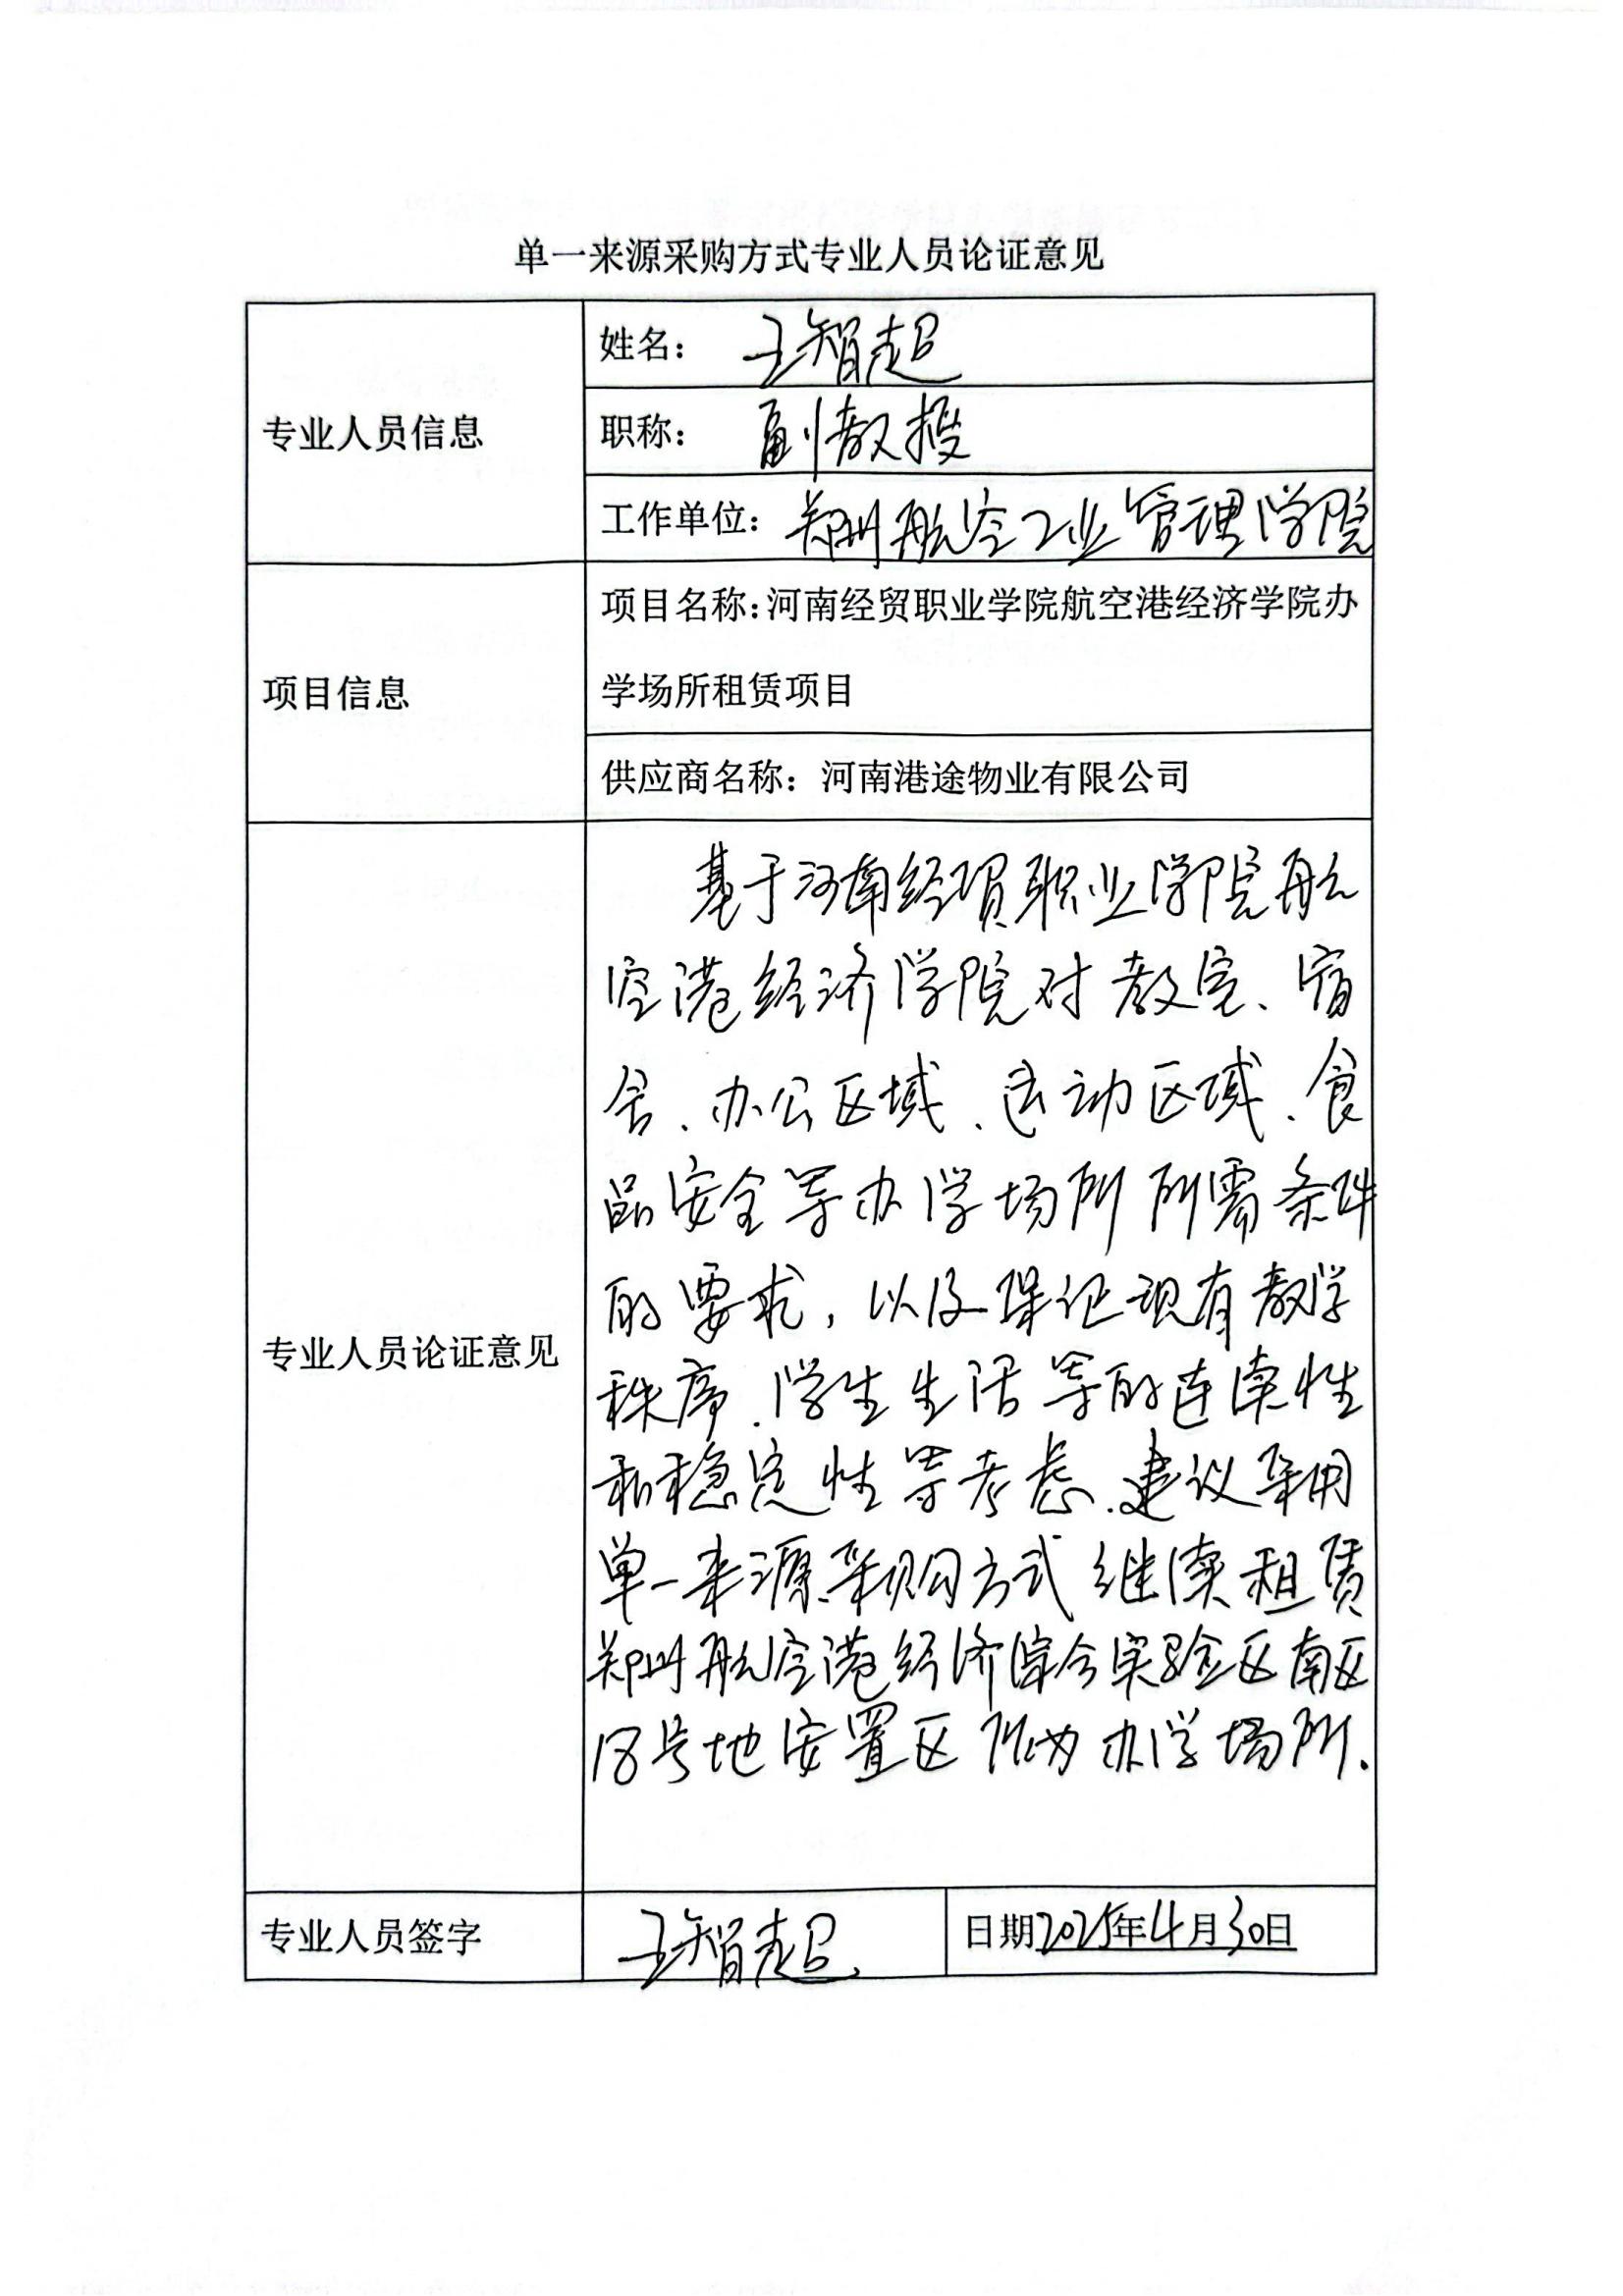 单一来源采购方式专业人员论证意见
专业人员信息
姓名： 王智超
职称： 副教授
工作单位： 郑州航空工业管理学院
项目信息
项目名称：河南经贸职业学院航空港经济学院办
学场所租赁项目
供应商名称：河南港途物业有限公司
专业人员论证意见
基于河南经贸职业学院航
空港经济学院对教室、宿
舍、办公区域、运动区域、食
品安全等办学场所所需条件
的要求，以及保证现有教学
秩序、学生生活等的连续性
和稳定性等考虑、建议采用
单一来源采购方式继续租赁
郑州航空港经济综合实验区南区
18号地安置区作为办学场所.
专业人员签字
王智超
日期2025年4月30日